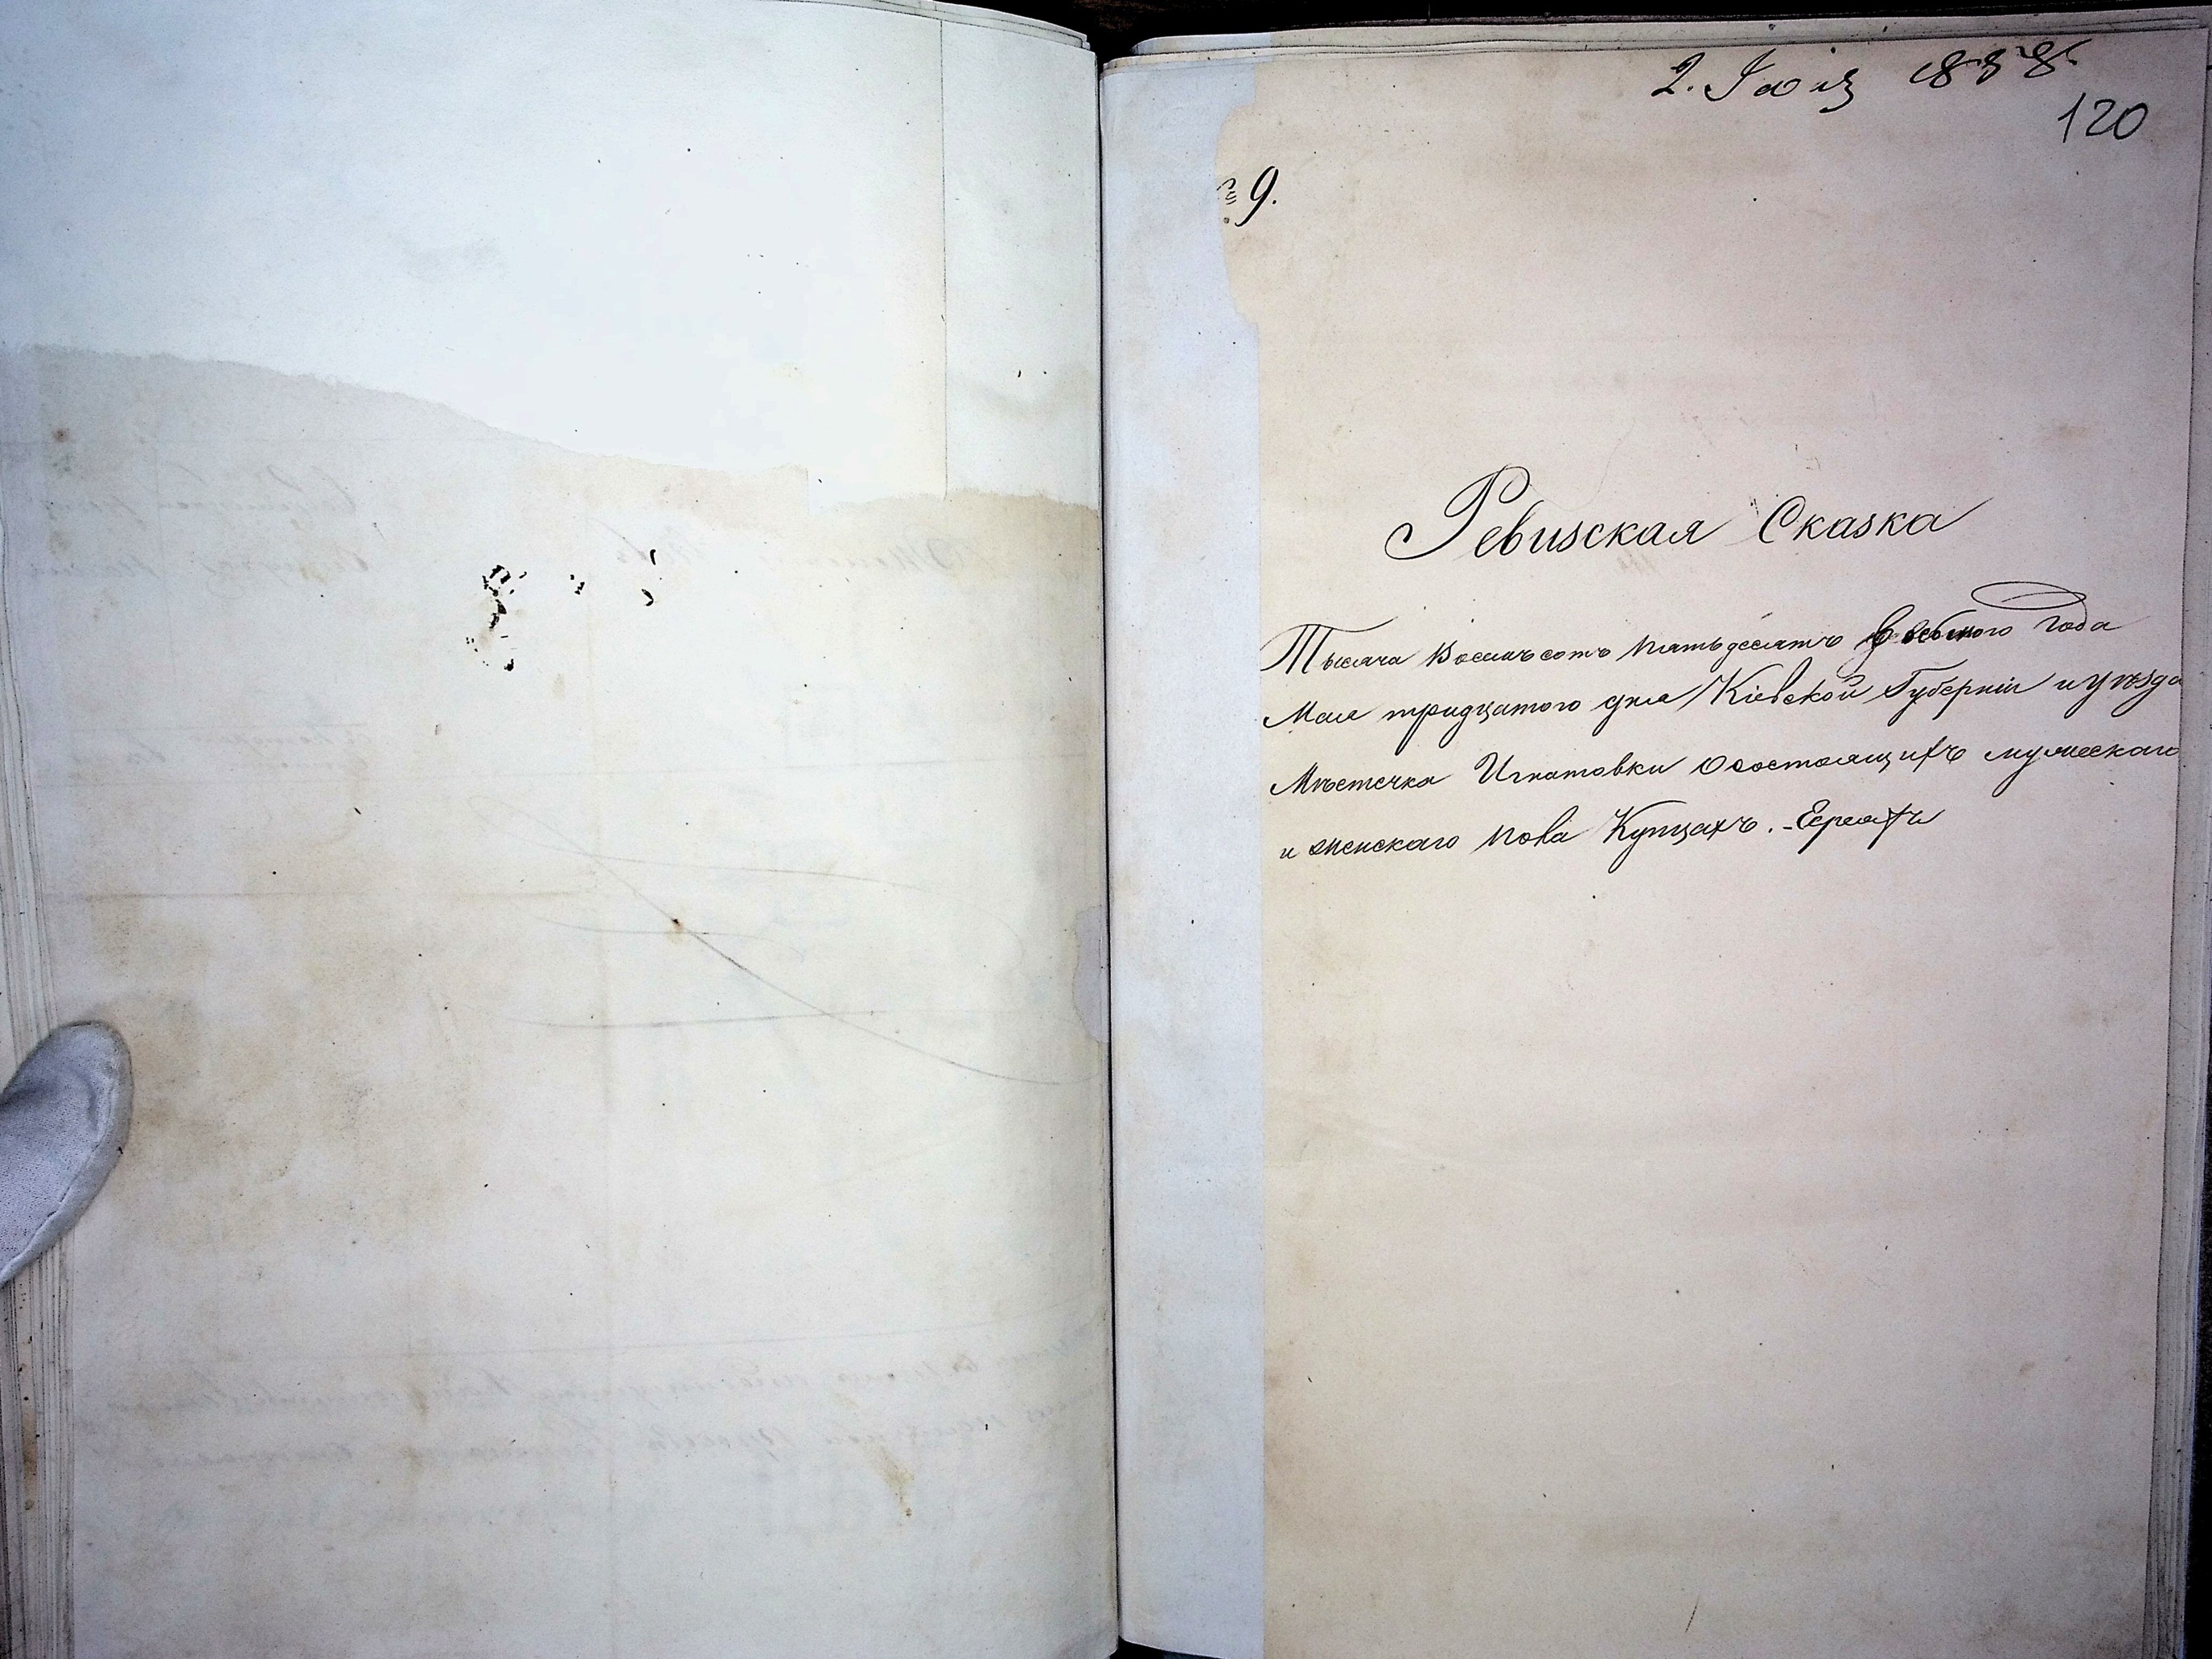 2. Іюня 1858
120
№ 9.
Ревизская Сказка
Тысяча Восемьсотъ пятьдесятъ восьмого года
Мая тридцатого дня Кіевской Губерніи и уѣзда
Мѣстечка Игнатовки о состоящихъ мужескаго
и женскаго пола Купцахъ. Евреяхъ